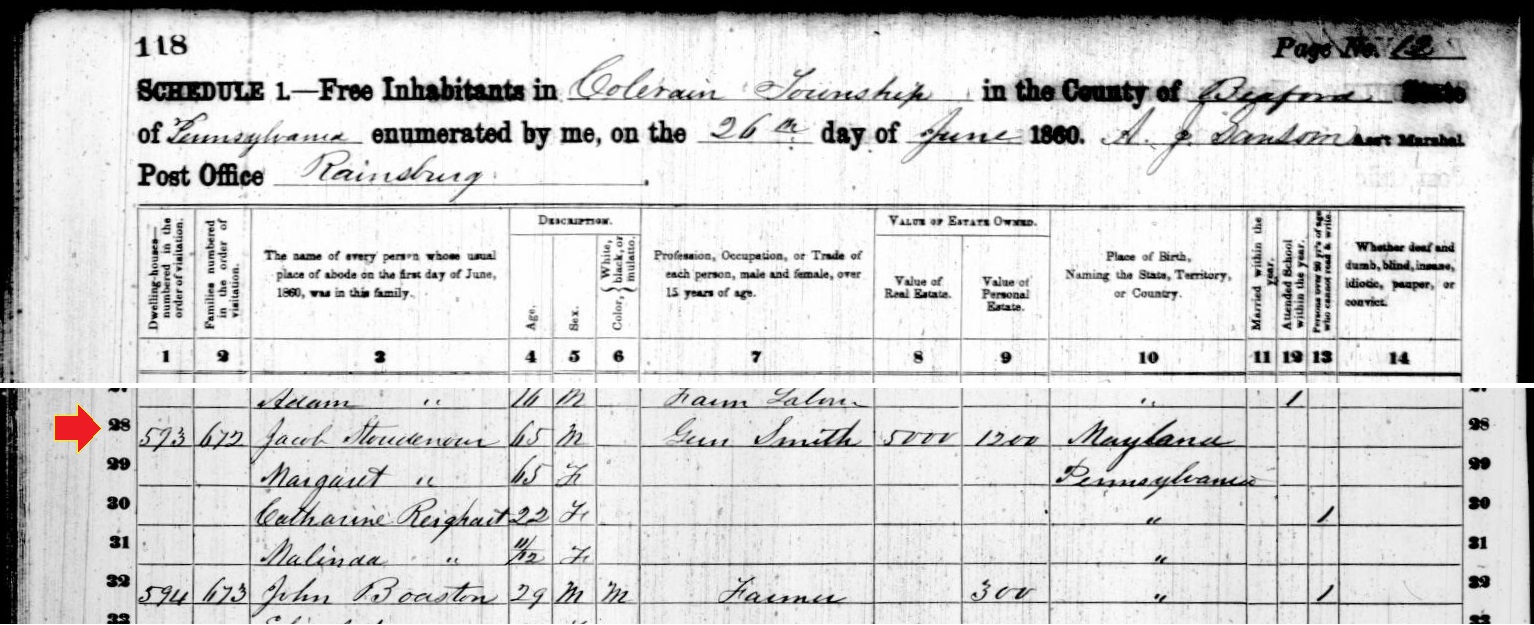 118 Page No. 12
SCHEDULE 1.—Free Inhabitants in Colerain Township in the County of Bedford State
of Pennsylvania enumerated by me, on the 26th day of June 1860. A. J. Sansom Ass't Marshal
Post Office Rainsburg
Dwelling-houses— numbered in the order of visitation.
Families numbered in the order of visitation.
The name of every person whose usual place of abode on the first day of June, 1860, was in this family.
DESCRIPTION.
Age.
Sex.
Color, { White, black, or mulatto.
Profession, Occupation, or Trade of each person, male and female, over 15 years of age.
VALUE OF ESTATE OWNED.
Value of Real Estate.
Value of Personal Estate.
Place of Birth, Naming the State, Territory, or Country.
Married within the year.
Attended School within the year.
Persons over 20 y'rs of age who cannot read & write.
Whether deaf and dumb, blind, insane, idiotic, pauper, or convict.
1 2 3 4 5 6 7 8 9 10 11 12 13 14
27 Adam " 16 M Farm Labor " 1 27
28 593 672 Jacob Stoudenour 65 M Gun Smith 5000 1200 Mayland 28
29 Margaret " 65 F Pennsylvania 29
30 Catharine Reighart 22 F " 1 30
31 Malinda " 11/12 F " 31
32 594 673 John Boaston 29 M M Farmer 300 " 1 32
33 33